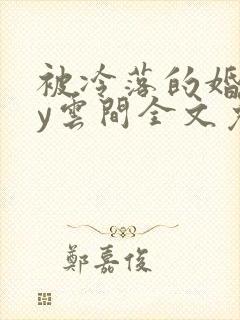 被冷落的婚
y雲間全文
鄭嘉俊